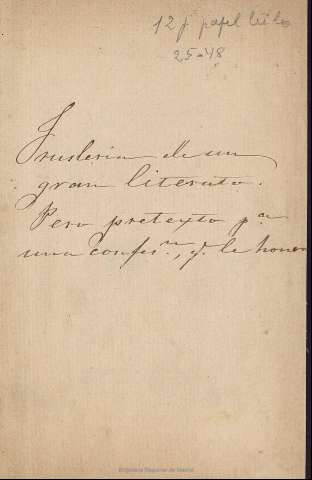 12 j papel hilo
25-48
Fruslería de un
gran literato.
Pero pretexto pª
una confesⁿ, q. le honra
Biblioteca Regional de Madrid